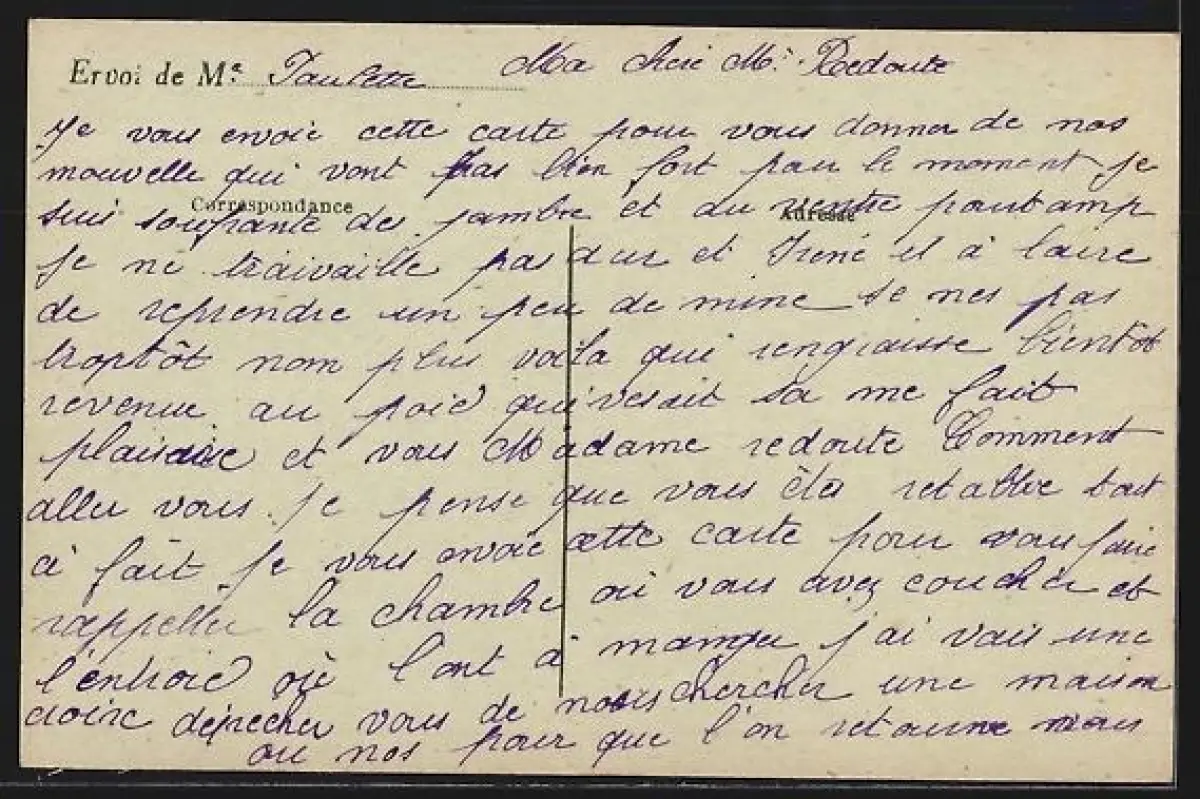 Envoi de Mᵉ Paulette Ma chere Mᵐ Redoute
Je vous envoie cette carte pour vous donner de nos
nouvelle qui vont pas bien fort pour le moment je
Correspondance Adresse
suis soufrante des jambre et du ventre pourtamp
je ne traivaille pas dur et Irené il à laire
de reprendre un peu de mine se nes pas
troptôt nom plus voila qui rengraisse bientôt
revenue au poid qu'verait sa me fait
plaisire et vous Madame redoute Comment
aller vous. je pense que vous êtes retablie tout
à fait je vous envoie cette carte pour vous faire
rappeller la chambre où vous avez coucher et
l'entroid où l'ont à manger j'ai vais une
croire depecher vous de nous chercher une maison
ou nos pour que l'on retourne